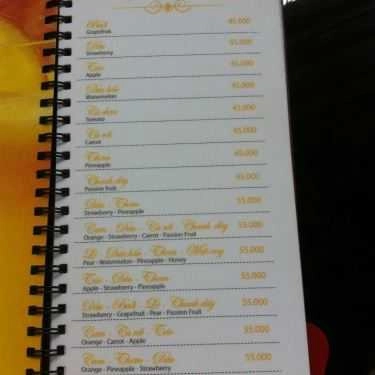 Bưởi 45.000
Grapefruit
Dâu 55.000
Strawberry
Táo 45.000
Apple
Dưa hấu 45.000
Watermelon
Cà chua 45.000
Tomato
Cà rốt 45.000
Carrot
Thơm 45.000
Pineapple
Chanh dây 45.000
Passion fruit
Dâu - Thơm 55.000
Strawberry - Pineapple
Cam - Dâu - Cà rốt - Chanh dây 55.000
Orange - Strawberry - Carrot - Passion Fruit
Lê - Dưa hấu - Thơm - Mật ong 55.000
Pear - Watermelon - Pineapple - Honey
Táo - Dâu - Thơm 55.000
Apple - Strawberry - Pineapple
Dâu - Bưởi - Lê - Chanh dây 55.000
Strawberry - Grapefruit - Pear - Passion Fruit
Cam - Cà rốt - Táo 55.000
Orange - Carrot - Apple
Cam - Thơm - Dâu 55.000
Orange - Pineapple - Strawberry